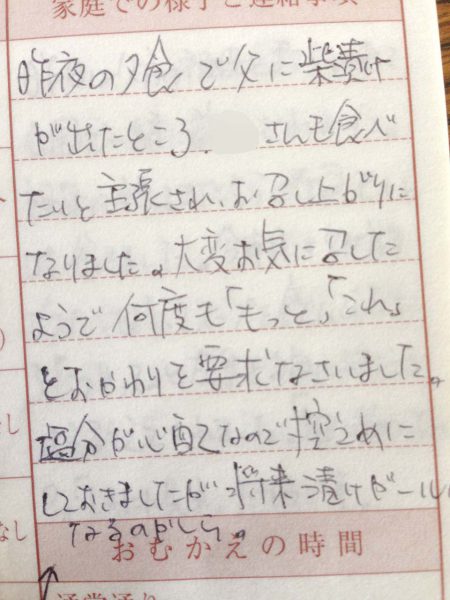 家庭での様子と連絡事項
昨夜の夕食で父に柴漬け
が出たところ、 さんも食べ
たいと主張され、お召し上がりに
なりました。大変お気に召した
ようで何度も「もっと」「これ」
とおかわりを要求なさいました。
塩分が心配なので控えめに
しておきましたが将来漬けガール
なるのかしら。
おむかえの時間
通常通り